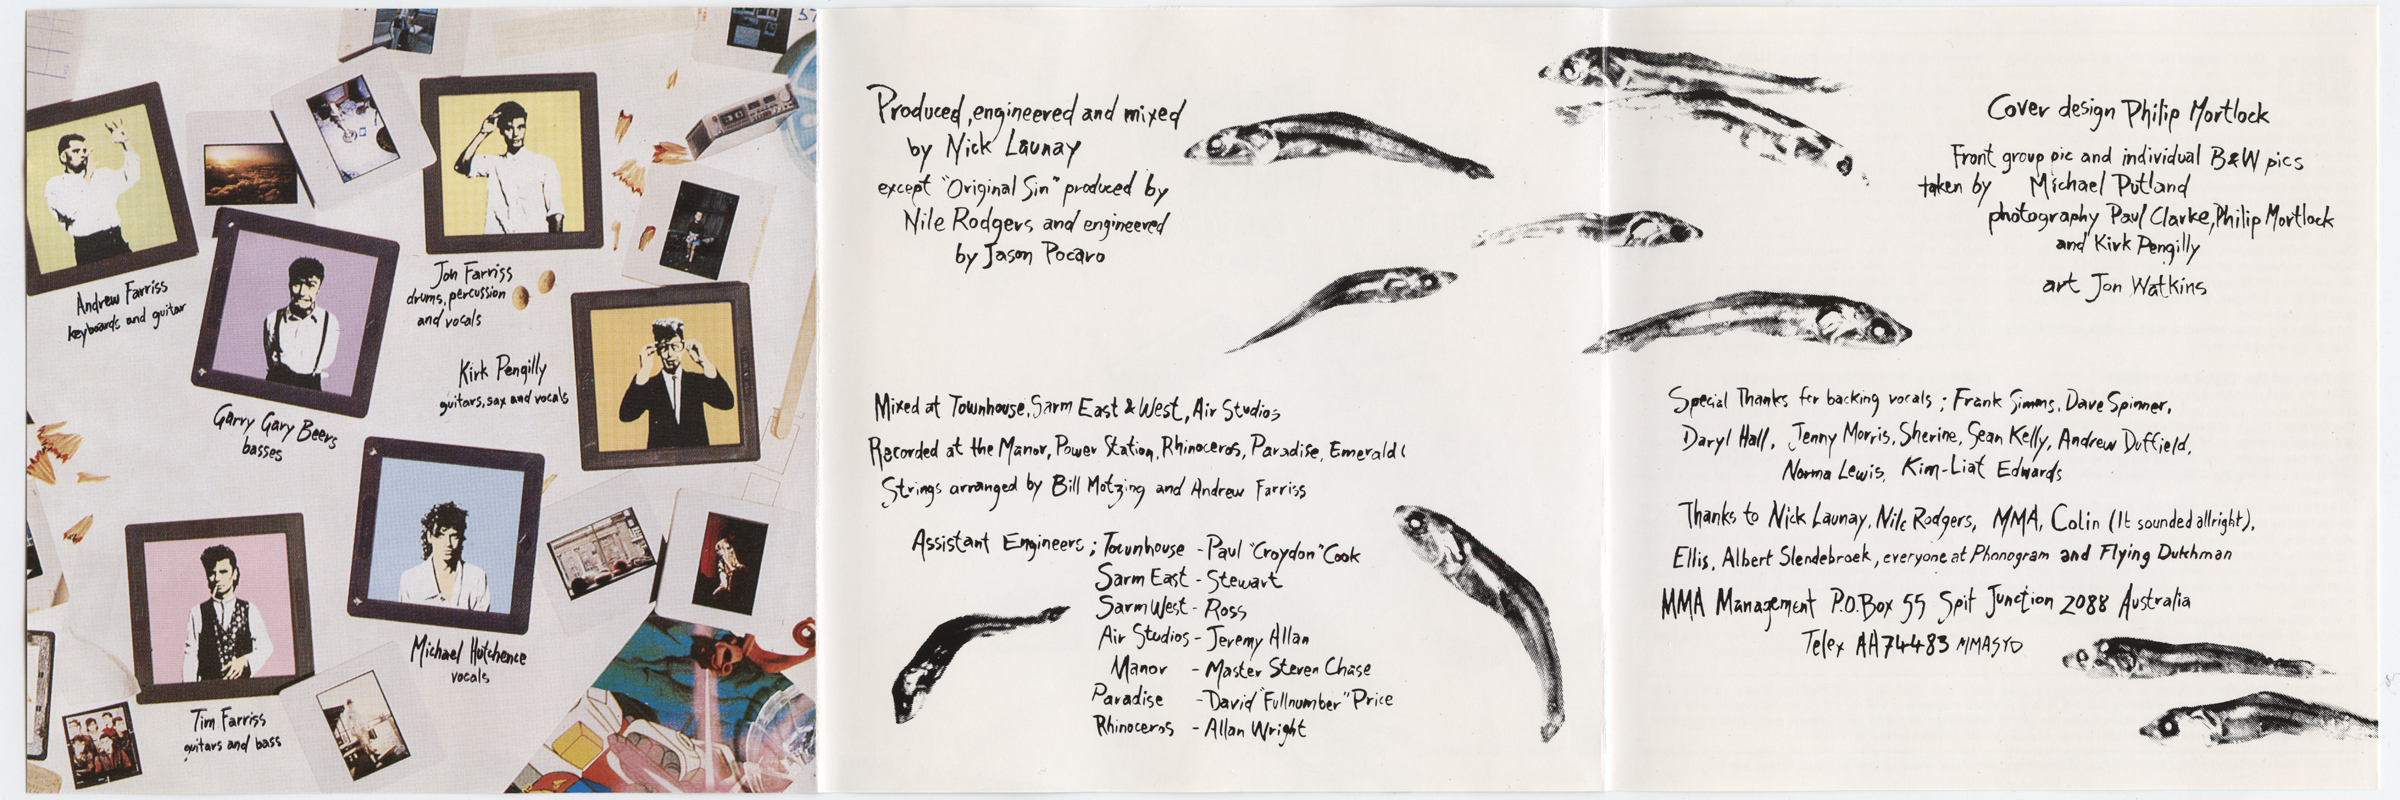 Andrew Farriss
keyboards and guitar
Jon Farriss
drums, percussion
and vocals
Garry Gary Beers
basses
Kirk Pengilly
guitars, sax and vocals
Michael Hutchence
vocals
Tim Farriss
guitars and bass
Produced, engineered and mixed
by Nick Launay
except "Original Sin" produced by
Nile Rodgers and engineered
by Jason Pocaro
Mixed at Townhouse, Sarm East & West, Air Studios
Recorded at the Manor, Power Station, Rhinoceros, Paradise, Emerald C
Strings arranged by Bill Motzing and Andrew Farriss
Assistant Engineers; Townhouse - Paul "Croydon" Cook
Sarm East - Stewart
Sarm West - Ross
Air Studios - Jeremy Allan
Manor - Master Steven Chase
Paradise - David "Fullnumber" Price
Rhinoceros - Allan Wright
Cover design Philip Mortlock
Front group pic and individual B&W pics
taken by Michael Putland
photography Paul Clarke, Philip Mortlock
and Kirk Pengilly
art Jon Watkins
Special Thanks for backing vocals; Frank Simms, Dave Spinner,
Daryl Hall, Jenny Morris, Sherine, Sean Kelly, Andrew Duffield,
Norma Lewis, Kim-Liat Edwards
Thanks to Nick Launay, Nile Rodgers, MMA, Colin (It sounded allright),
Ellis, Albert Slendebroek, everyone at Phonogram and Flying Dutchman
MMA Management P.O.Box 55 Spit Junction 2088 Australia
Telex AA74483 MMASYD